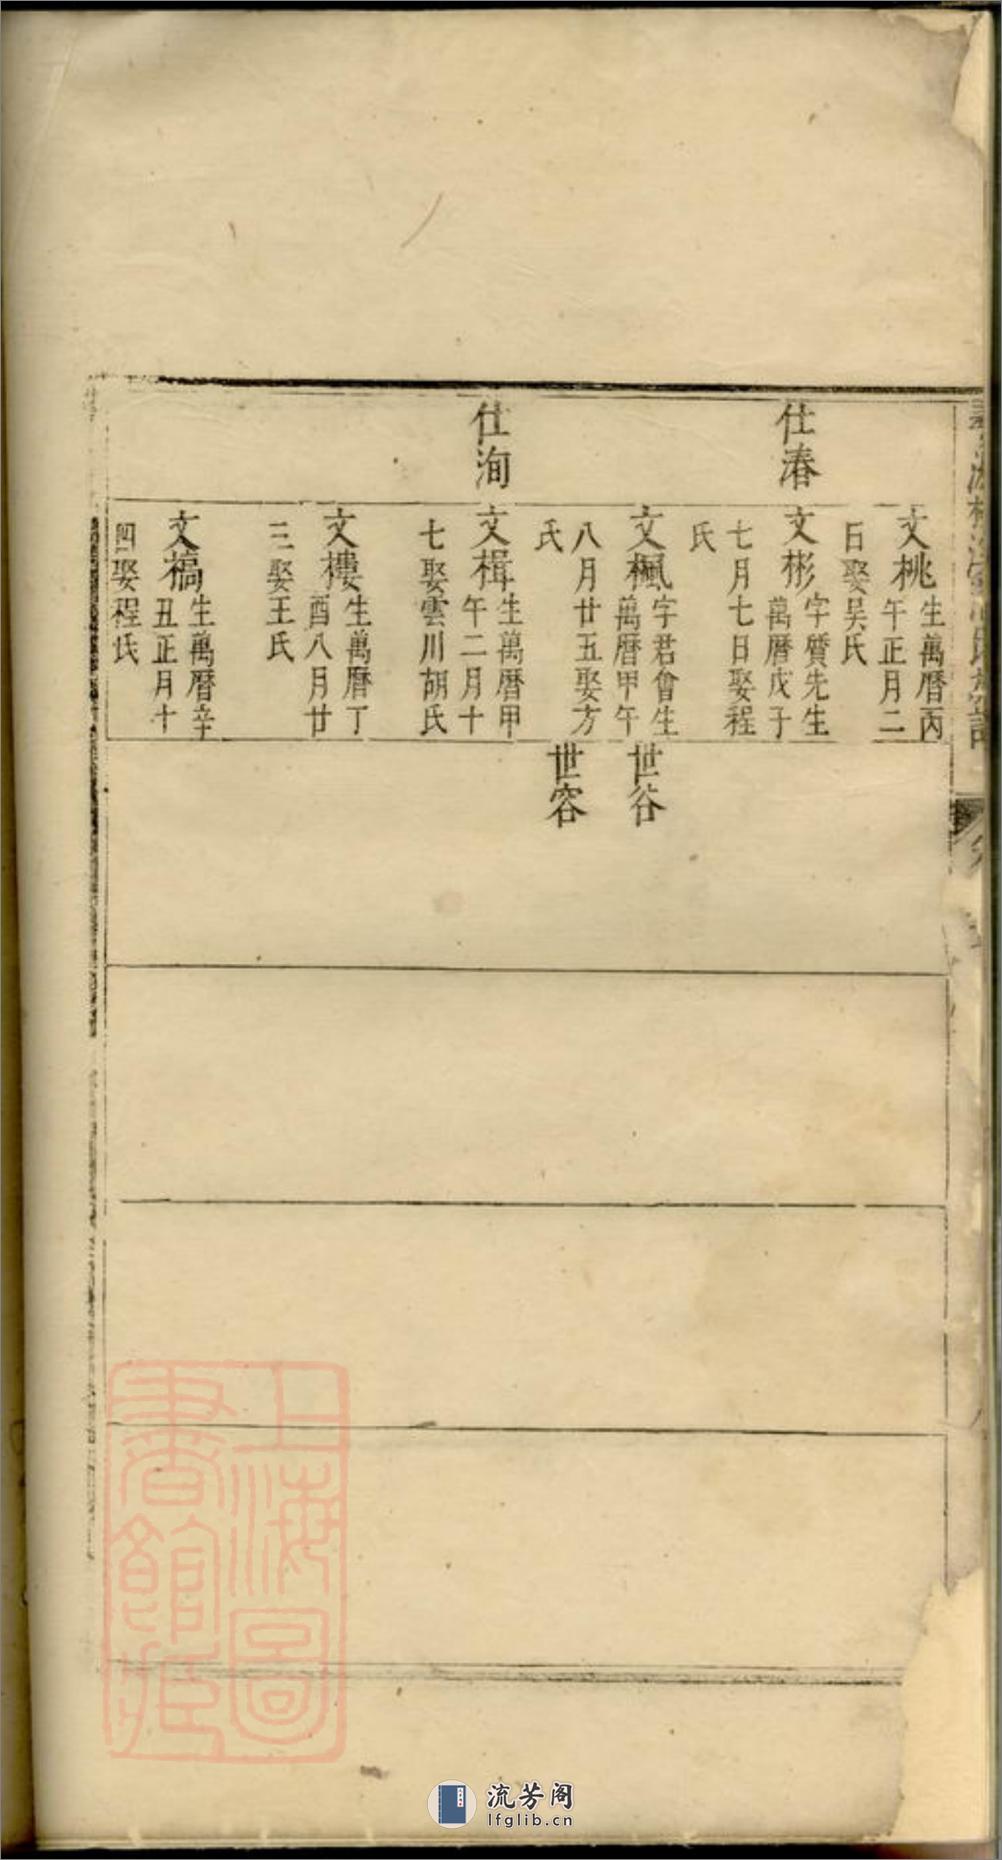 仕漘
仕洵
文桃
生萬曆丙
午正月二
日娶吴氏
文彬
字質先生
萬曆戊子
七月七日娶程
氏
文楓
字君會生
萬曆甲午
八月廿五娶方
氏
文楫
生萬曆甲
午二月十
七娶雲川胡氏
文樓
生萬曆丁
酉八月廿
三娶王氏
文槁
生萬曆辛
丑正月十
四娶程氏
世谷
世容
上海圖
書館藏
流芳阁
lfglib.cn